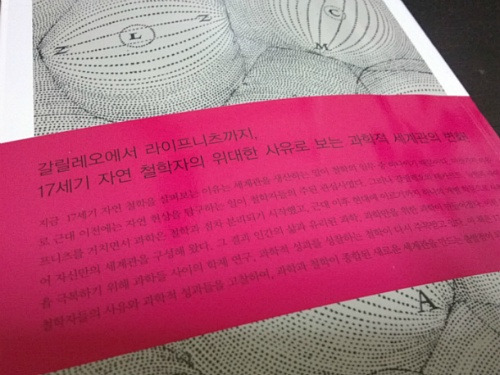 L
C
N
Z
M
갈릴레오에서 라이프니츠까지,
17세기 자연 철학자의 위대한 사유로 보는 과학적 세계관의 변화
지금 17세기 자연 철학을 살펴보는 이유는 세계관을 생산하는 일이 철학의
로 근대 이전에는 자연 현상을 탐구하는 일이 철학자들의 주된 관심사였다.
프니츠를 거치면서 과학은 철학과 점차 분리되기 시작했고, 근대 이후
여 자신만의 세계관을 구성해 왔다. 그 결과 인간의 삶과 유리된 과학, 과학만을 위한
을 극복하기 위해 과학들 사이의 학제 연구, 과학적 성과를 성찰하는 철학이 다시
철학자들의 사유와 과학적 성과들을 고찰하여, 과학과 철학이 종합된 새로운 세계관을 만드는
A